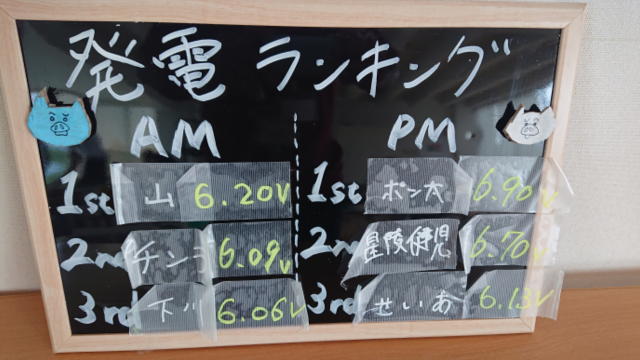 発電ランキング
AM
1st 山 6.20V
2nd 6.09V
3rd 下川 6.06V
PM
1st ポン大 6.90V
2nd 星陵健児 6.70V
3rd せいあ 6.13V